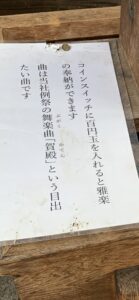 コインスイッチに百円玉を入れると雅楽
の奉納ができます
曲は当社例祭の舞楽曲「賀殿」という目出
たい曲です